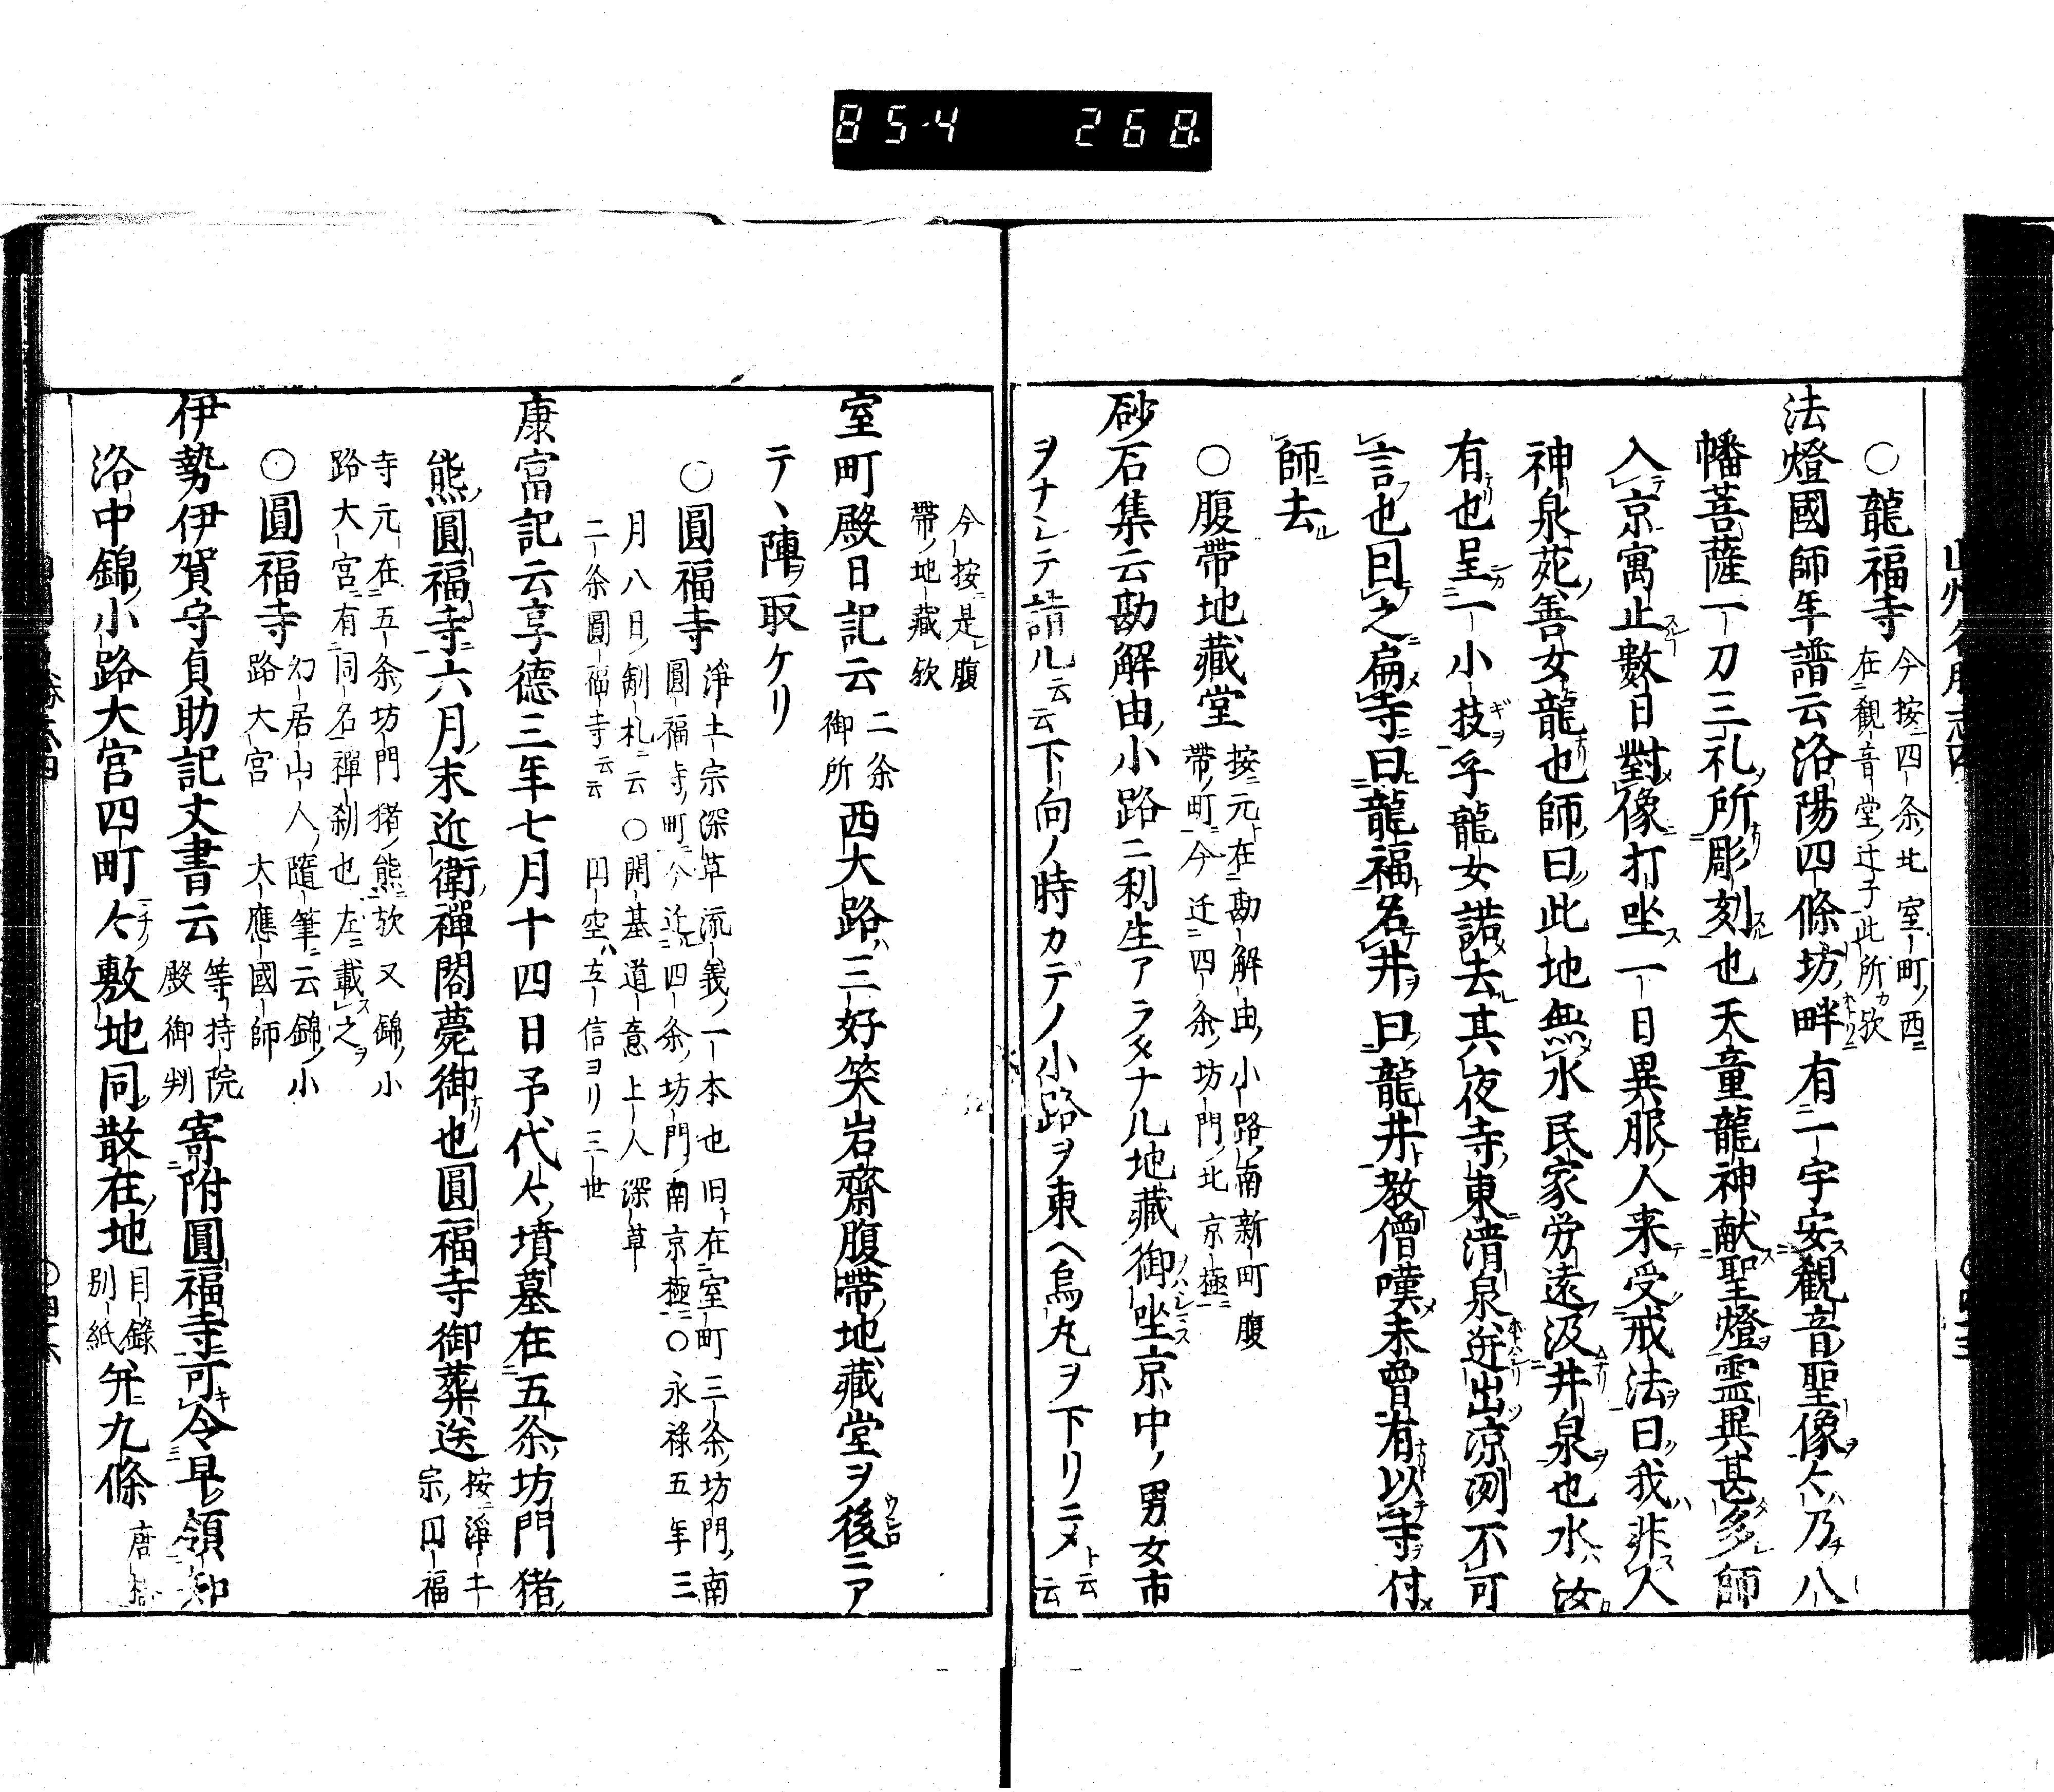 85-4 268
○龍福寺 今按四条北室町西
在観音堂辻子此所カ欤
法燈國師年譜云洛陽四條坊畔有一宇安観音聖像今乃八
幡菩薩一刀三礼所彫刻也天童龍神献聖燈霊異甚多師
入京寓止數日對像打坐一日異服人来受戒法曰我非人
神泉苑善女龍也師曰此地無水民家労遠汲井泉也水汝
有也呈一小技乎龍女諾去其夜寺東清泉迸出涼冽不可
言也因之扁寺曰龍福名井曰龍井教僧嘆未曾有以寺付
師去
○腹帯地藏堂 按元在勘解由小路南新町腹
帯町今迁四条坊門北京極
砂石集云勘解由小路ニ利生アラタナル地藏御坐京中ノ男女市
ヲナシテ詣ル云云下向ノ時カデノ小路ヲ東ヘ烏丸ヲ下リニメト云云
今按是腹
帯ノ地藏欤
室町殿日記云二条御所西大路ハ三好笑岩齋腹帯地藏堂ヲ後ニア
テヽ陣ヲ取ケリ
○圓福寺 浄土宗深草流義ノ一本也旧在室町三条坊門南
圓福寺町今迁四条坊門南京極○永禄五年三
月八日制札云○開基道意上人深草
二条圓福寺云云 円空ハ立信ヨリ三世
康富記云享徳三年七月十四日予代々墳墓在五条坊門猪
熊圓福寺六月末近衛禪閤薨御也圓福寺御葬送 按浄土
宗円福
寺元在五条坊門猪熊欤又錦小
路大宮有同名禪刹也左載之
○圓福寺 幻居山人隨筆云錦小
路大宮 大應國師
伊勢伊賀守貞助記丈書云等持院殿御判寄附圓福寺可令早領知
洛中錦小路大宮四町々敷地同散在地目録別紙并九條